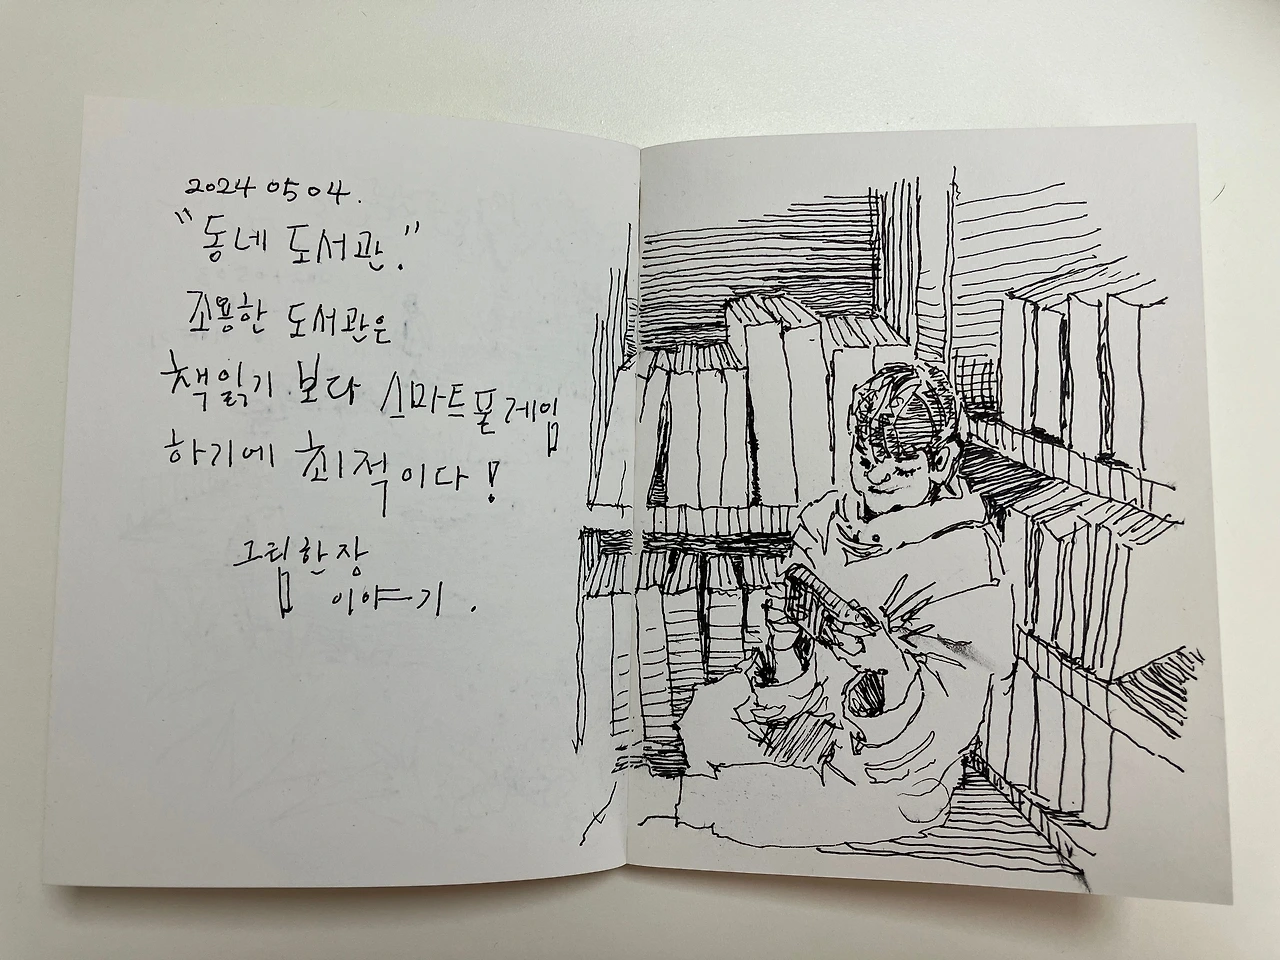 2024 05 04.
"동네 도서관."
조용한 도서관은
책읽기 보다 스마트폰게임
하기에 최적이다!
그림한장
이야기.